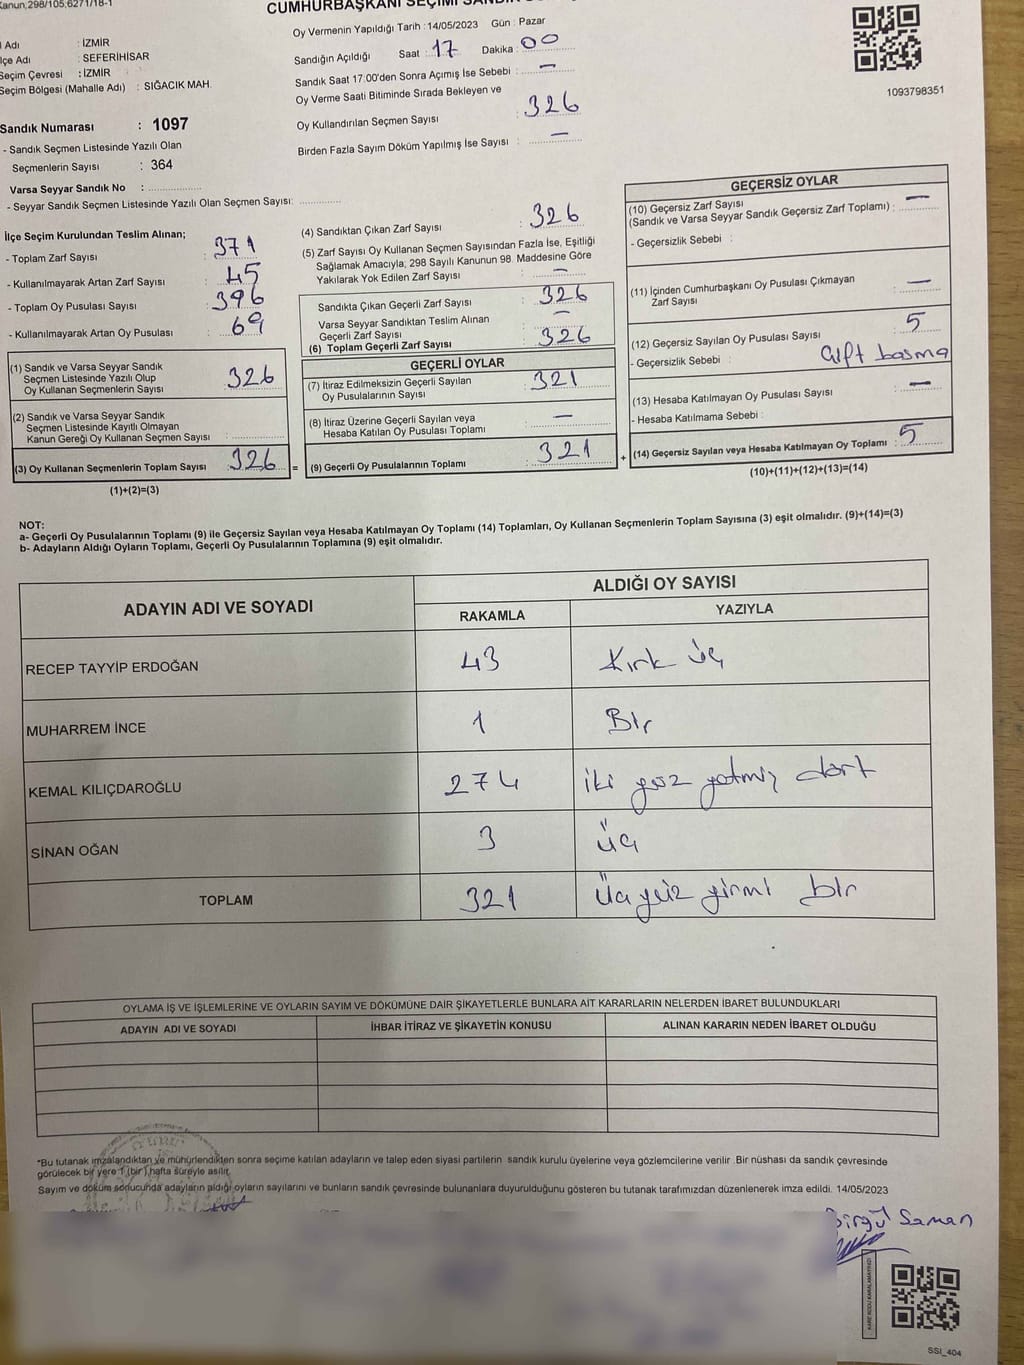 Kanun,298/105,6271/18-1
CUMHURBAŞKANI SEÇİMİ SANDIK
İl Adı : İZMİR
İlçe Adı : SEFERİHİSAR
Seçim Çevresi : İZMİR
Seçim Bölgesi (Mahalle Adı) : SIĞACIK MAH.
Sandık Numarası : 1097
- Sandık Seçmen Listesinde Yazılı Olan
Seçmenlerin Sayısı : 364
Varsa Seyyar Sandık No :
- Seyyar Sandık Seçmen Listesinde Yazılı Olan Seçmen Sayısı:
Oy Vermenin Yapıldığı Tarih : 14/05/2023 Gün : Pazar
Sandığın Açıldığı Saat : 17 Dakika : 00
Sandık Saat 17:00'den Sonra Açımış İse Sebebi : —
Oy Verme Saati Bitiminde Sırada Bekleyen ve
Oy Kullandırılan Seçmen Sayısı : 326
Birden Fazla Sayım Döküm Yapılmış İse Sayısı : —
1093798351
İlçe Seçim Kurulundan Teslim Alınan;
- Toplam Zarf Sayısı : 371
- Kullanılmayarak Artan Zarf Sayısı : 45
- Toplam Oy Pusulası Sayısı : 396
- Kullanılmayarak Artan Oy Pusulası : 69
(1) Sandık ve Varsa Seyyar Sandık
Seçmen Listesinde Yazılı Olup
Oy Kullanan Seçmenlerin Sayısı : 326
(2) Sandık ve Varsa Seyyar Sandık
Seçmen Listesinde Kayıtlı Olmayan
Kanun Gereği Oy Kullanan Seçmen Sayısı :
(3) Oy Kullanan Seçmenlerin Toplam Sayısı : 326 =
(1)+(2)=(3)
(4) Sandıktan Çıkan Zarf Sayısı : 326
(5) Zarf Sayısı Oy Kullanan Seçmen Sayısından Fazla İse, Eşitliği
Sağlamak Amacıyla, 298 Sayılı Kanunun 98. Maddesine Göre
Yakılarak Yok Edilen Zarf Sayısı : —
Sandıkta Çıkan Geçerli Zarf Sayısı : 326
Varsa Seyyar Sandıktan Teslim Alınan
Geçerli Zarf Sayısı : —
(6) Toplam Geçerli Zarf Sayısı : 326
GEÇERLİ OYLAR
(7) İtiraz Edilmeksizin Geçerli Sayılan
Oy Pusulalarının Sayısı : 321
(8) İtiraz Üzerine Geçerli Sayılan veya
Hesaba Katılan Oy Pusulası Toplamı : —
(9) Geçerli Oy Pusulalarının Toplamı : 321 +
GEÇERSİZ OYLAR
(10) Geçersiz Zarf Sayısı
(Sandık ve Varsa Seyyar Sandık Geçersiz Zarf Toplamı) : —
- Geçersizlik Sebebi :
(11) İçinden Cumhurbaşkanı Oy Pusulası Çıkmayan
Zarf Sayısı : —
(12) Geçersiz Sayılan Oy Pusulası Sayısı : 5
- Geçersizlik Sebebi : çift basma
(13) Hesaba Katılmayan Oy Pusulası Sayısı : —
- Hesaba Katılmama Sebebi :
(14) Geçersiz Sayılan veya Hesaba Katılmayan Oy Toplamı : 5
(10)+(11)+(12)+(13)=(14)
NOT:
a- Geçerli Oy Pusulalarının Toplamı (9) ile Geçersiz Sayılan veya Hesaba Katılmayan Oy Toplamı (14) Toplamları, Oy Kullanan Seçmenlerin Toplam Sayısına (3) eşit olmalıdır. (9)+(14)=(3)
b- Adayların Aldığı Oyların Toplamı, Geçerli Oy Pusulalarının Toplamına (9) eşit olmalıdır.
ADAYIN ADI VE SOYADI ALDIĞI OY SAYISI
RAKAMLA YAZIYLA
RECEP TAYYİP ERDOĞAN 43 Kırk üç
MUHARREM İNCE 1 Bir
KEMAL KILIÇDAROĞLU 274 iki yüz yetmiş dört
SİNAN OĞAN 3 üç
TOPLAM 321 Üç yüz yirmi bir
OYLAMA İŞ VE İŞLEMLERİNE VE OYLARIN SAYIM VE DÖKÜMÜNE DAİR ŞİKAYETLERLE BUNLARA AİT KARARLARIN NELERDEN İBARET BULUNDUKLARI
ADAYIN ADI VE SOYADI İHBAR İTİRAZ VE ŞİKAYETİN KONUSU ALINAN KARARIN NEDEN İBARET OLDUĞU
*Bu tutanak imzalandıktan ve mühürlendikten sonra seçime katılan adayların ve talep eden siyasi partilerin sandık kurulu üyelerine veya gözlemcilerine verilir .Bir nüshası da sandık çevresinde
görülecek bir yere 1 (bir ) hafta süreyle asılır.
Sayım ve döküm sonucunda adayların aldığı oyların sayılarını ve bunların sandık çevresinde bulunanlara duyurulduğunu gösteren bu tutanak tarafımızdan düzenlenerek imza edildi. 14/05/2023
Birgül Saman
KARE KODU KARALAMAYINIZ!
SSI_404